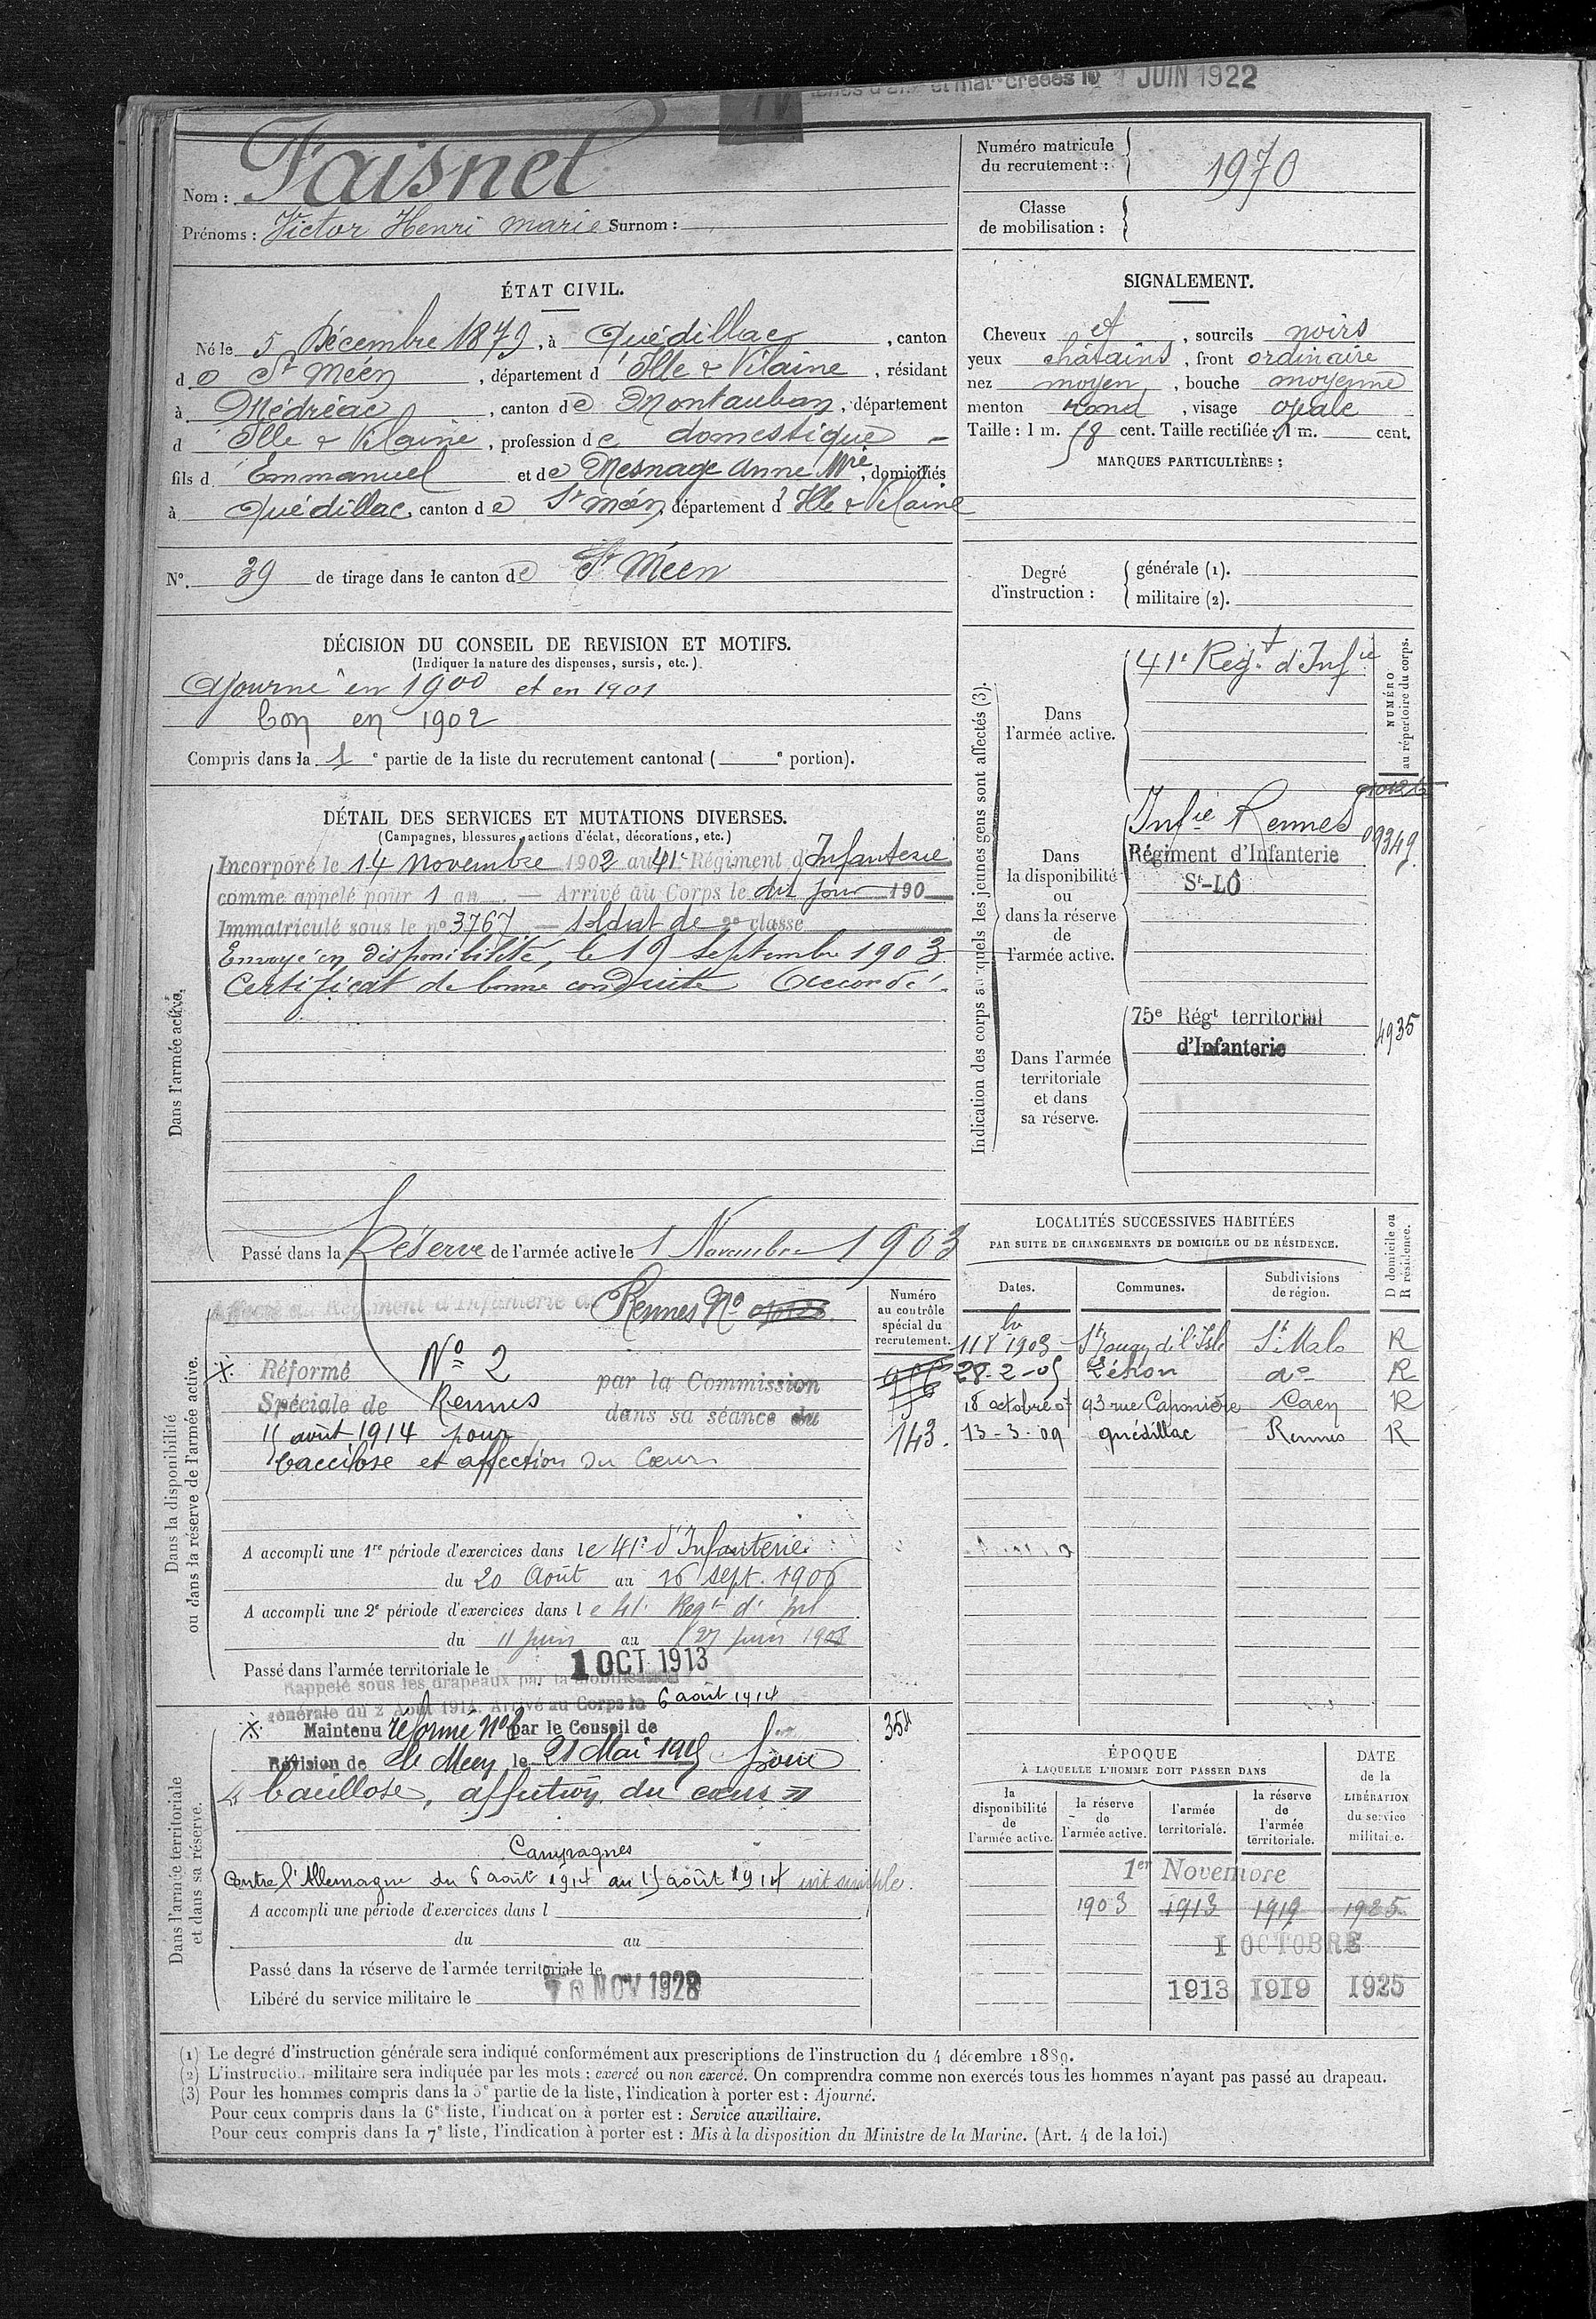 et mat. créées le 1 JUIN 1922
Nom : Faisnel
Prénoms : Victor Henri Marie Surnom :
Numéro matricule
du recrutement :
1970
Classe
de mobilisation :
ÉTAT CIVIL.
Né le 5 Décembre 1879, à Quédillac, canton
de St Méen, département d'Ille & Vilaine, résidant
à Médréac, canton de Montauban, département
d'Ille & Vilaine, profession de domestique
fils d'Emmanuel et de Mesnage Anne Mie, domiciliés
à Quédillac, canton de St Méen, département d'Ille & Vilaine
N° 39 de tirage dans le canton de St Méen
SIGNALEMENT.
Cheveux et, sourcils noirs
yeux châtains, front ordinaire
nez moyen, bouche moyenne
menton rond, visage ovale
Taille : 1 m. 58 cent. Taille rectifiée : 1 m. cent.
MARQUES PARTICULIÈRES :
Degré
d'instruction :
générale (1).
militaire (2).
DÉCISION DU CONSEIL DE REVISION ET MOTIFS.
(Indiquer la nature des dispenses, sursis, etc.)
Ajourné en 1900 et en 1901
bon en 1902
Compris dans la 1e partie de la liste du recrutement cantonal ( e portion).
DÉTAIL DES SERVICES ET MUTATIONS DIVERSES.
(Campagnes, blessures, actions d'éclat, décorations, etc.)
Dans l'armée active.
Incorporé le 14 novembre 1902 au 41e Régiment d'Infanterie
comme appelé pour 1 an Arrivé au Corps le dit jour 190
Immatriculé sous le n° 3767 - soldat de 2e classe
Envoyé en disponibilité, le 19 septembre 1903
Certificat de bonne conduite Accordé.
Passé dans la Réserve de l'armée active le 1 Novembre 1903
Indication des corps auxquels les jeunes gens sont affectés (3).
NUMÉRO
au répertoire du corps.
Dans
l'armée active.
41e Régt d'Infie
Dans
la disponibilité
ou
dans la réserve
de
l'armée active.
Infie Rennes
09349
Régiment d'Infanterie
St-LÔ
Dans l'armée
territoriale
et dans
sa réserve.
75e Régt territorial
d'Infanterie
4935
LOCALITÉS SUCCESSIVES HABITÉES
PAR SUITE DE CHANGEMENTS DE DOMICILE OU DE RÉSIDENCE.
D domicile ou
R résidence.
Dates. Communes. Subdivisions
de région.
1903 de l'Isle St Malo R
28-2-05 Léhon do R
18 octobre 93 rue Caponière Caen R
13-3-09 quédillac Rennes R
Dans la disponibilité
ou dans la réserve de l'armée active.
Numéro
au contrôle
spécial du
recrutement.
Affecté au Régiment d'Infanterie de Rennes No
Réformé No 2 par la Commission
Spéciale de Rennes dans sa séance du
11 août 1914 pour
baccilose et affection du Cœur
143.
A accompli une 1re période d'exercices dans le 41e d'Infanterie
du 20 Août au 16 sept. 1906
A accompli une 2e période d'exercices dans le 41e Regt d' Inf
du 11 juin au 27 juin 1908
Passé dans l'armée territoriale le 1 OCT 1913
Dans l'armée territoriale
et dans sa réserve.
Rappelé sous les drapeaux par la mobilisation
générale du 2 Août 1914. Arrivé au Corps le 6 août 1914
Maintenu réformé No 2 par le Conseil de
Révision de St Méen le 21 Mai 1915 pour
354
« bacillose, affection du cœur »
Campagnes
Contre l'Allemagne du 6 août 1914 au 15 août 1914 int simple.
A accompli une période d'exercices dans l
du au
Passé dans la réserve de l'armée territoriale le
Libéré du service militaire le 10 NOV 1928
ÉPOQUE
À LAQUELLE L'HOMME DOIT PASSER DANS
la
disponibilité
de
l'armée active.
la réserve
de
l'armée active.
l'armée
territoriale.
la réserve
de
l'armée
territoriale.
DATE
de la
LIBÉRATION
du service
militaire.
1er Novembre
1903 1913 1919 1925
1 OCTOBRE
1913 1919 1925
(1) Le degré d'instruction générale sera indiqué conformément aux prescriptions de l'instruction du 4 décembre 1889.
(2) L'instruction militaire sera indiquée par les mots : exercé ou non exercé. On comprendra comme non exercés tous les hommes n'ayant pas passé au drapeau.
(3) Pour les hommes compris dans la 5e partie de la liste, l'indication à porter est : Ajourné.
Pour ceux compris dans la 6e liste, l'indication à porter est : Service auxiliaire.
Pour ceux compris dans la 7e liste, l'indication à porter est : Mis à la disposition du Ministre de la Marine. (Art. 4 de la loi.)